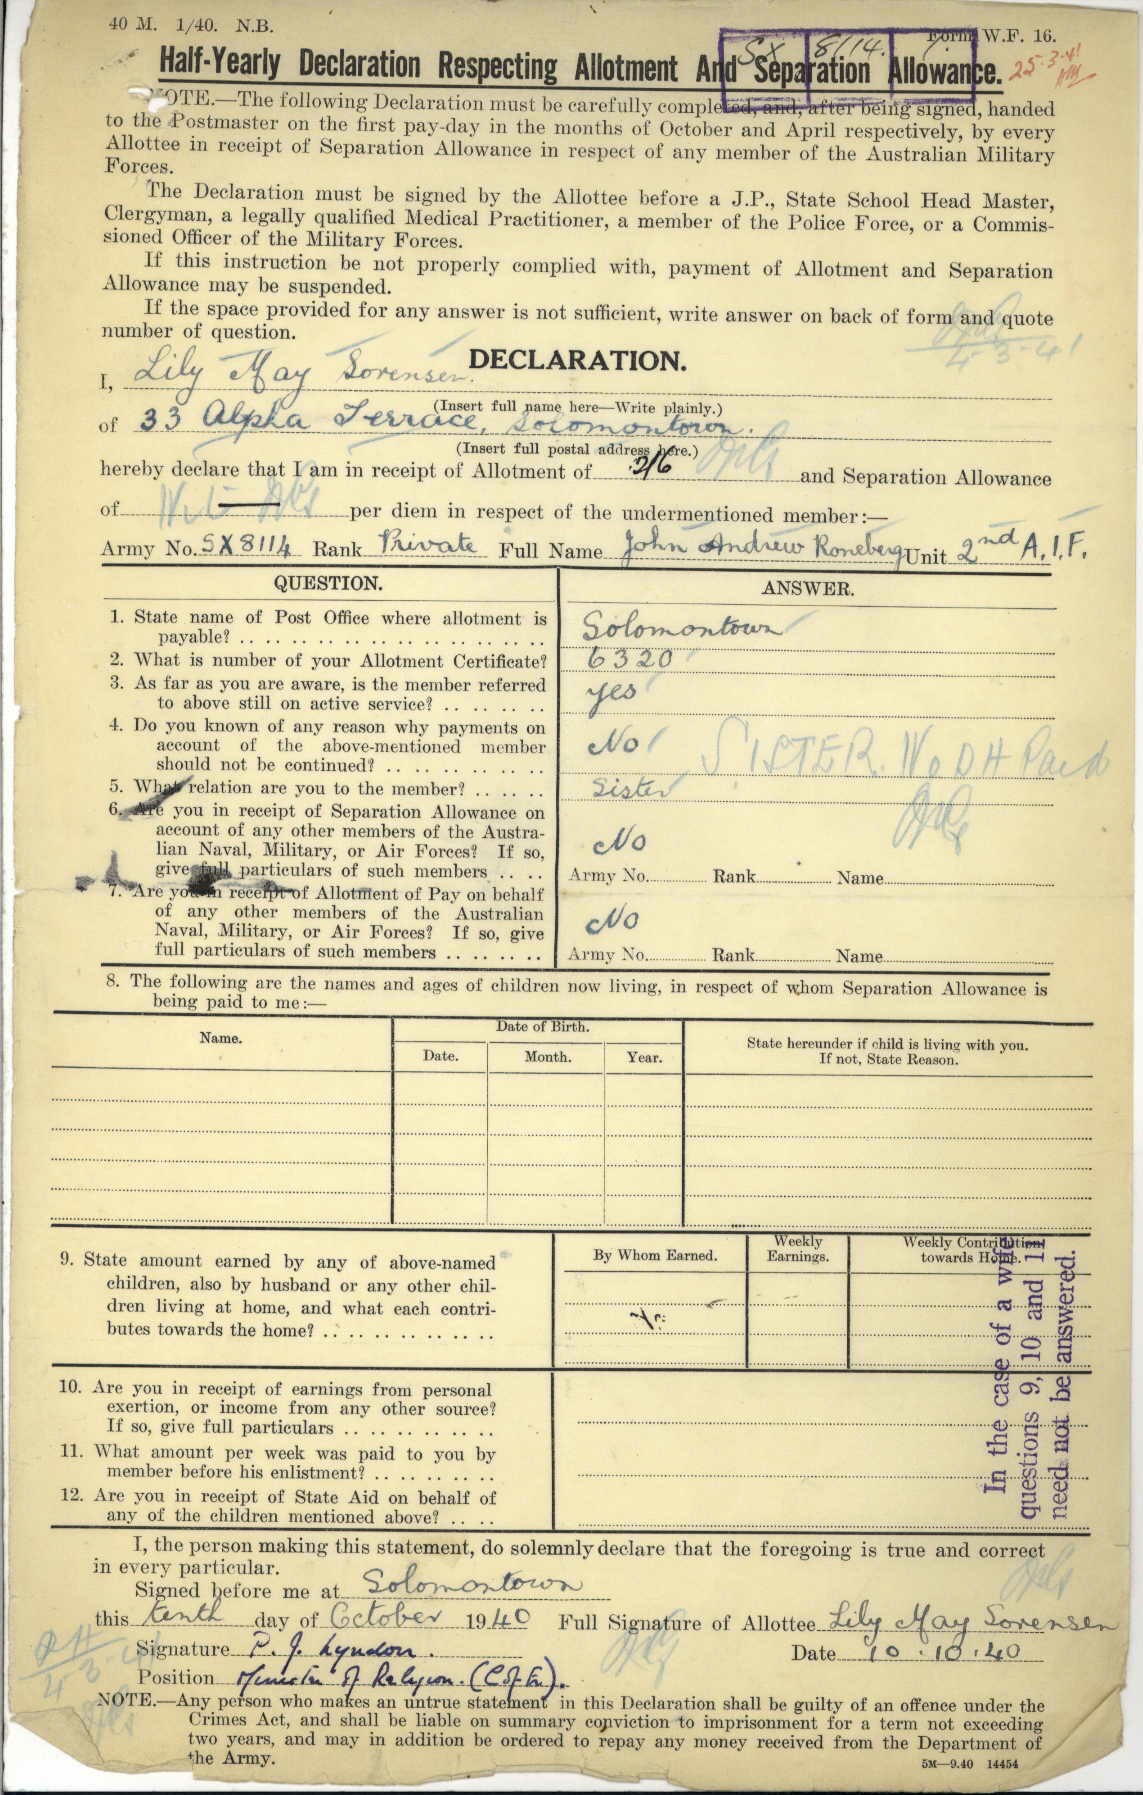 40 M. 1/40. N.B.
Form W.F. 16.
SX 8114.
25-3-41
Half-Yearly Declaration Respecting Allotment And Separation Allowance.
NOTE.—The following Declaration must be carefully completed, and, after being signed, handed
to the Postmaster on the first pay-day in the months of October and April respectively, by every
Allottee in receipt of Separation Allowance in respect of any member of the Australian Military
Forces.
The Declaration must be signed by the Allottee before a J.P., State School Head Master,
Clergyman, a legally qualified Medical Practitioner, a member of the Police Force, or a Commis-
sioned Officer of the Military Forces.
If this instruction be not properly complied with, payment of Allotment and Separation
Allowance may be suspended.
If the space provided for any answer is not sufficient, write answer on back of form and quote
number of question.
4-3-41
DECLARATION.
I, Lily May Sorensen.
(Insert full name here—Write plainly.)
of 33 Alpha Terrace, Solomontown.
(Insert full postal address here.)
hereby declare that I am in receipt of Allotment of 2/6 and Separation Allowance
of per diem in respect of the undermentioned member:—
Army No. SX8114 Rank Private Full Name John Andrew Roneberg Unit 2nd A.I.F.
QUESTION. ANSWER.
1. State name of Post Office where allotment is
payable? Solomontown
2. What is number of your Allotment Certificate? 6320
3. As far as you are aware, is the member referred
to above still on active service? yes
4. Do you known of any reason why payments on
account of the above-mentioned member
should not be continued? No
SISTER. No DH Paid
5. What relation are you to the member? Sister
6. Are you in receipt of Separation Allowance on
account of any other members of the Austra-
lian Naval, Military, or Air Forces? If so, No
give full particulars of such members Army No. Rank Name
7. Are you in receipt of Allotment of Pay on behalf
of any other members of the Australian
Naval, Military, or Air Forces? If so, give No
full particulars of such members Army No. Rank Name
8. The following are the names and ages of children now living, in respect of whom Separation Allowance is
being paid to me:—
Name. Date of Birth. State hereunder if child is living with you.
Date. Month. Year. If not, State Reason.
9. State amount earned by any of above-named
children, also by husband or any other chil-
dren living at home, and what each contri-
butes towards the home?
By Whom Earned. Weekly Earnings. Weekly Contribution towards Home.
In the case of a wife
questions 9, 10 and 11
need not be answered.
10. Are you in receipt of earnings from personal
exertion, or income from any other source?
If so, give full particulars
11. What amount per week was paid to you by
member before his enlistment?
12. Are you in receipt of State Aid on behalf of
any of the children mentioned above?
I, the person making this statement, do solemnly declare that the foregoing is true and correct
in every particular.
Signed before me at Solomontown
this tenth day of October 1940 Full Signature of Allottee Lily May Sorensen
Signature P. J. Lyndon. Date 10.10.40
Position Minister of Religion. (C of En).
4-3-41
NOTE.—Any person who makes an untrue statement in this Declaration shall be guilty of an offence under the
Crimes Act, and shall be liable on summary conviction to imprisonment for a term not exceeding
two years, and may in addition be ordered to repay any money received from the Department of
the Army.
5M—9.40 14454